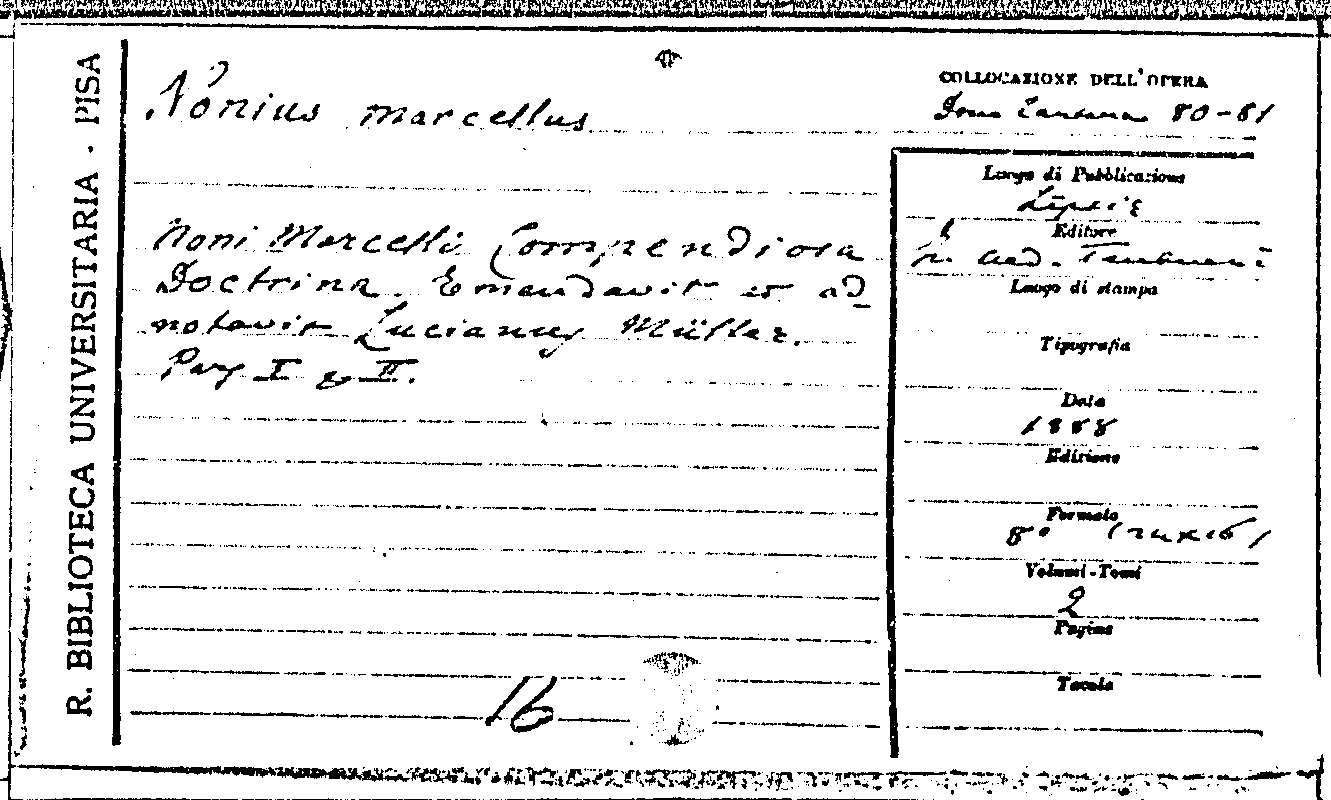 R. BIBLIOTECA UNIVERSITARIA - PISA
Nonius Marcellus
Noni Marcelli Compendiosa
Doctrina. Emendavit et ad
notavit Lucianus Müller.
Pars I & II.
16
COLLOCAZIONE DELL'OPERA
80-81
Luogo di Pubblicazione
Lipsiae
Editore
in aed. Teubneri
Luogo di stampa
Tipografia
Data
1888
Edizione
Formato
8°
Volumi-Tomi
2
Pagine
Tavole